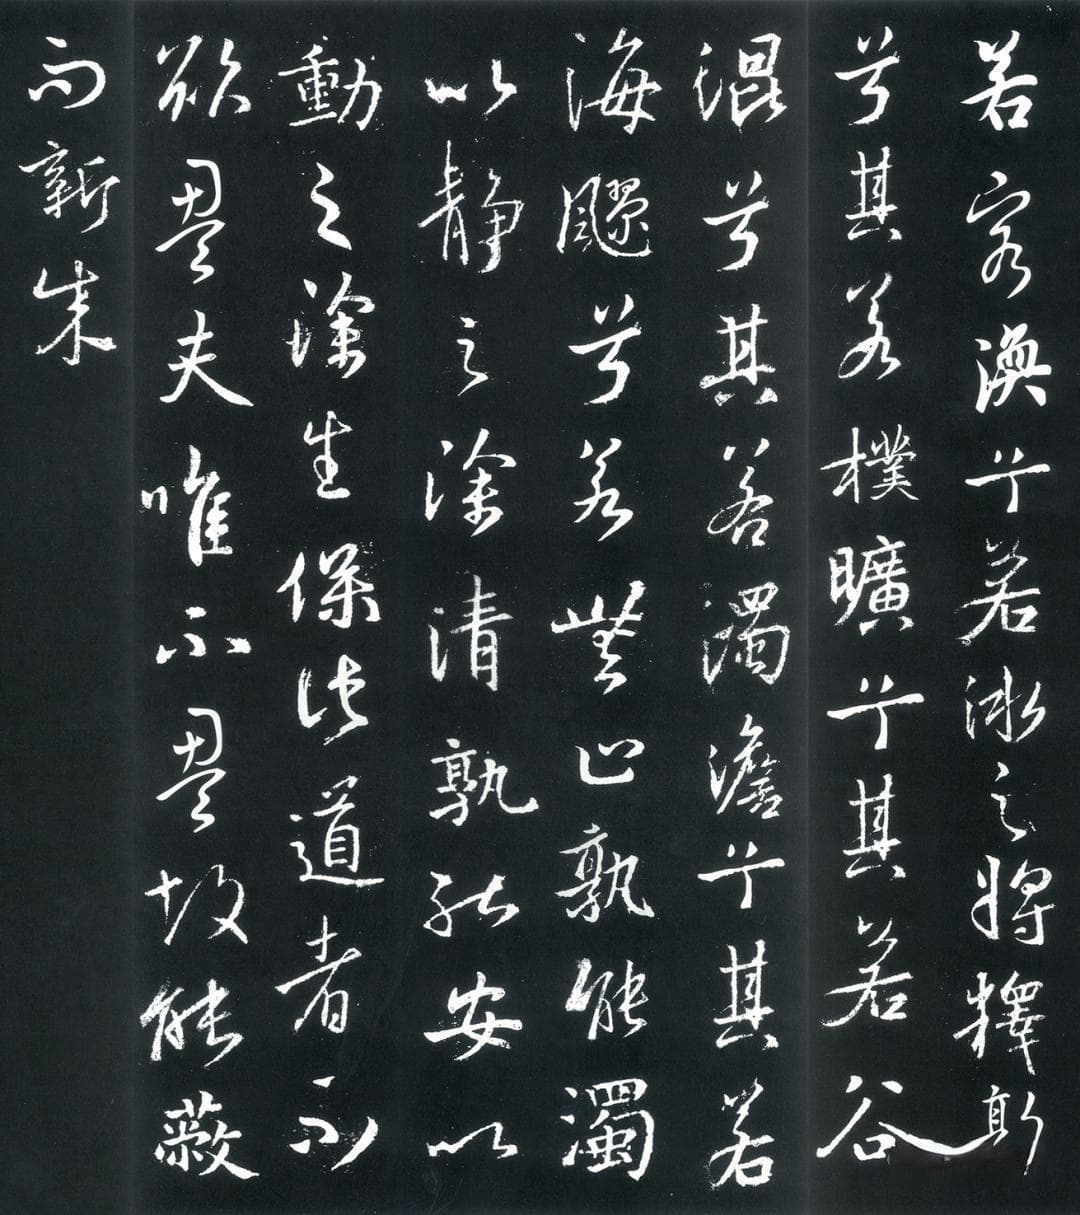 若客渙兮若冰之將釋敦
兮其若樸曠兮其若谷
混兮其若濁澹兮其若
海飂兮若無止孰能濁
以靜之徐清孰能安以
動之徐生保此道者不
欲盈夫唯不盈故能蔽
而新成